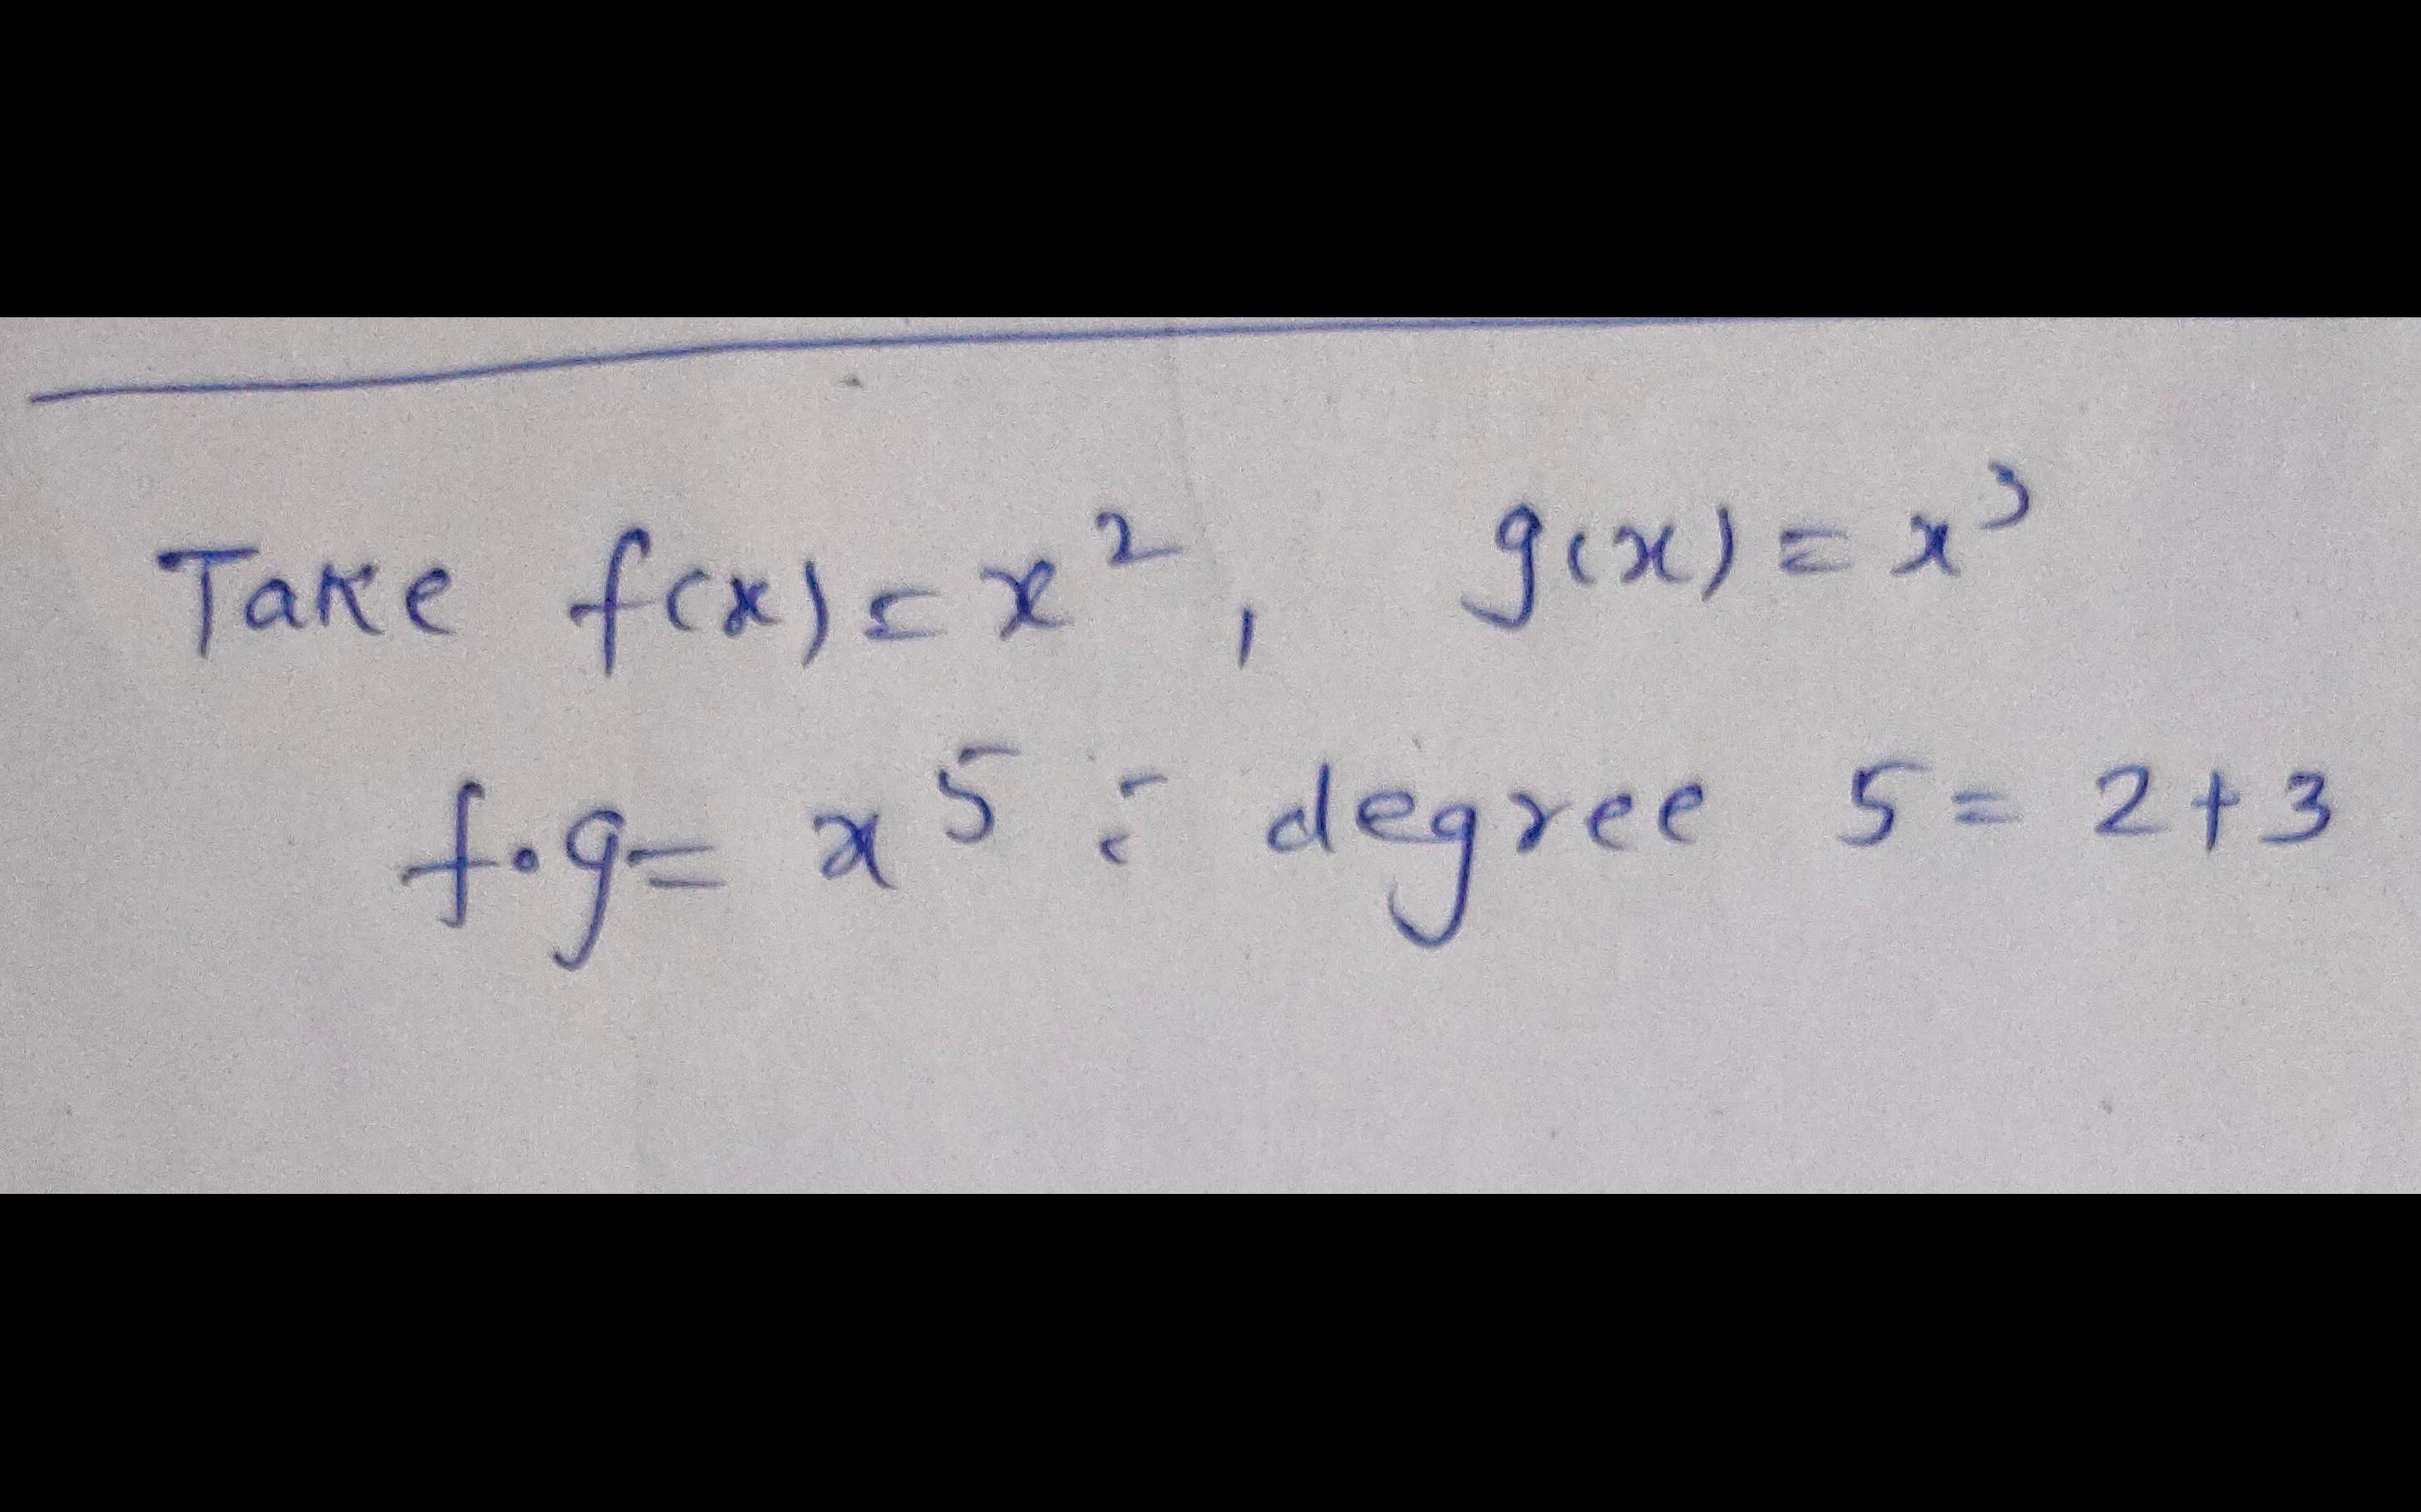 Take f(x) = x², g(x) = x³
f·g = x⁵ : degree 5 = 2+3